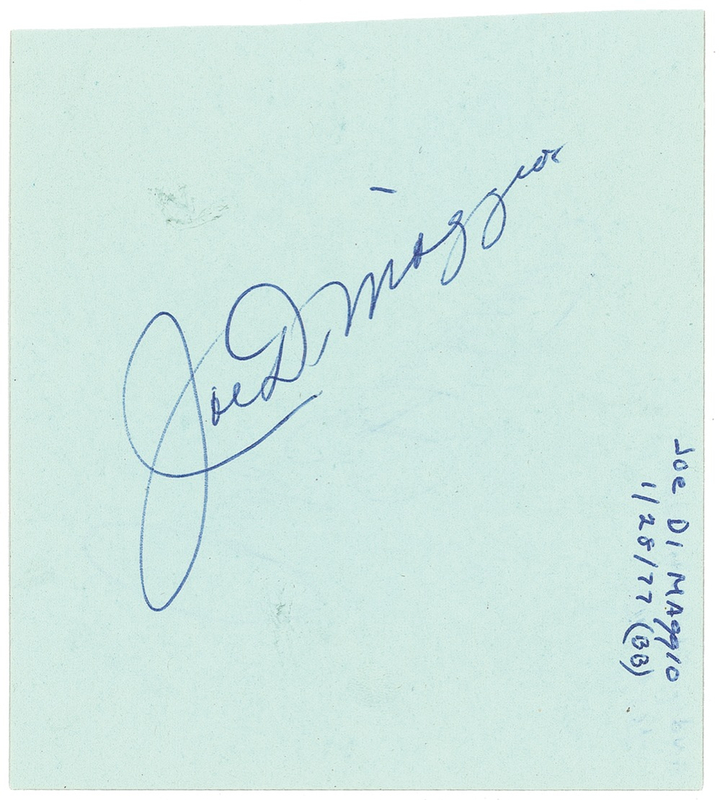 Joe DiMaggio
Joe Di Maggio
1/28/77 (BB)